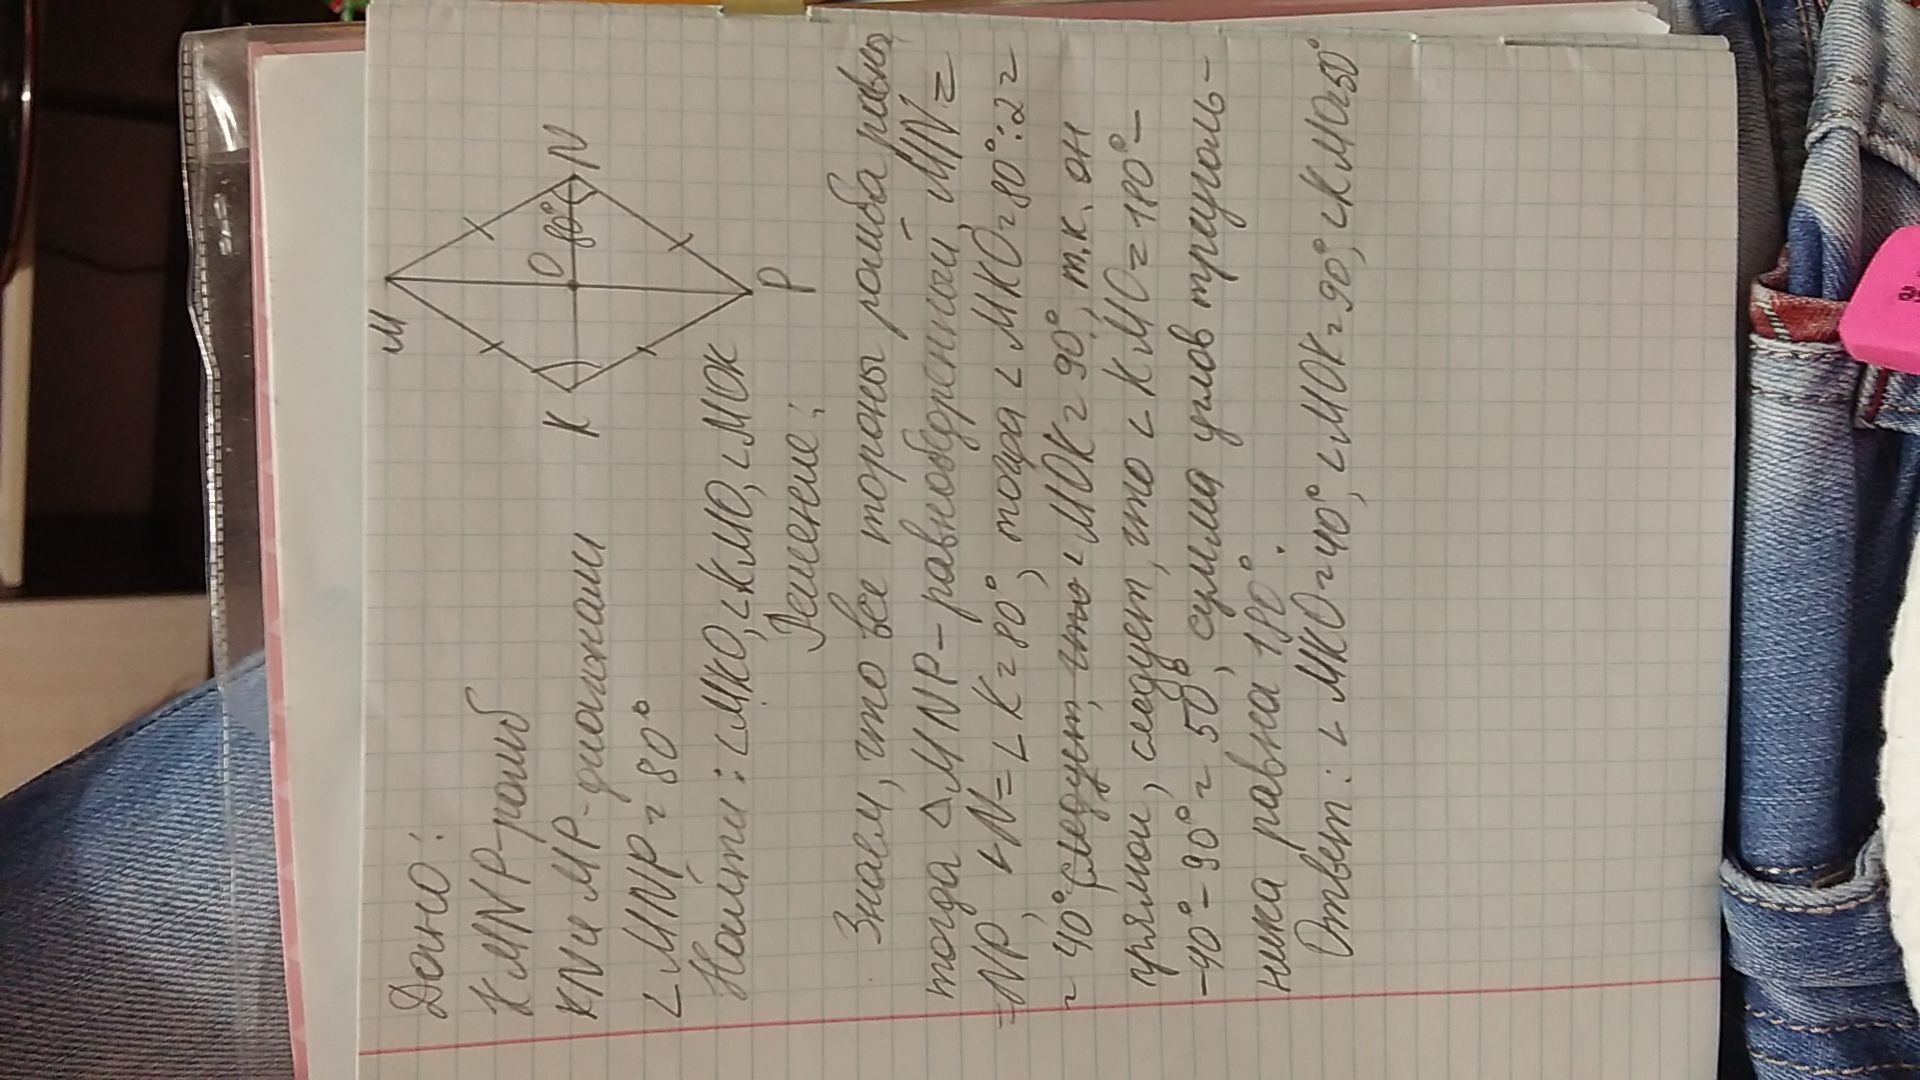 Дано:
KMNP-ромб
KN и MP-диагонали
∠MNP=80°
Найти: ∠MKO, ∠KMO, ∠MOK
M
K
O
80°
N
P
Решение:
Знаем, что все тороны ромба равны,
тогда △MNP-равнобедренный, MN=
=NP, ∠N=∠K=80°, тогда ∠MKO=80°:2=
=40° следует, что ∠MOK=90°, т.к. он
прямой, следует, что ∠KMO=180°-
-40°-90°=50°, сумма углов треуголь-
ника равна 180°.
Ответ: ∠MKO=40°, ∠MOK=90°, ∠KMO=50°